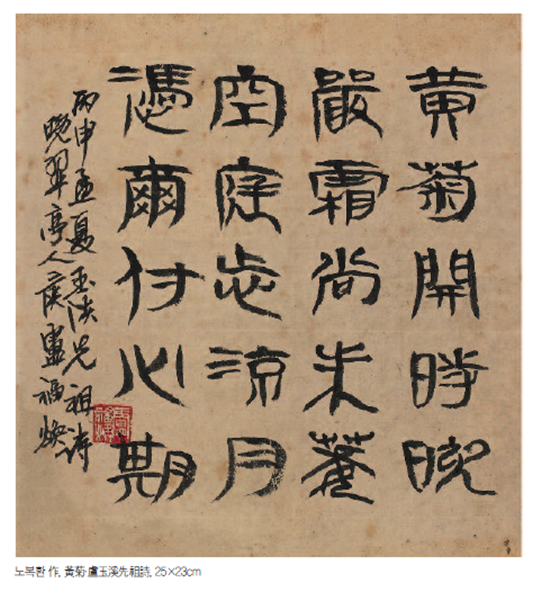 黄菊開時晩
嚴霜尚未萎
空庭涼月
憑爾付心期
丙申孟夏玉溪先祖詩
晩翠亭人盧福煥
노복환 作, 黃菊·盧玉溪先祖詩, 25×23cm